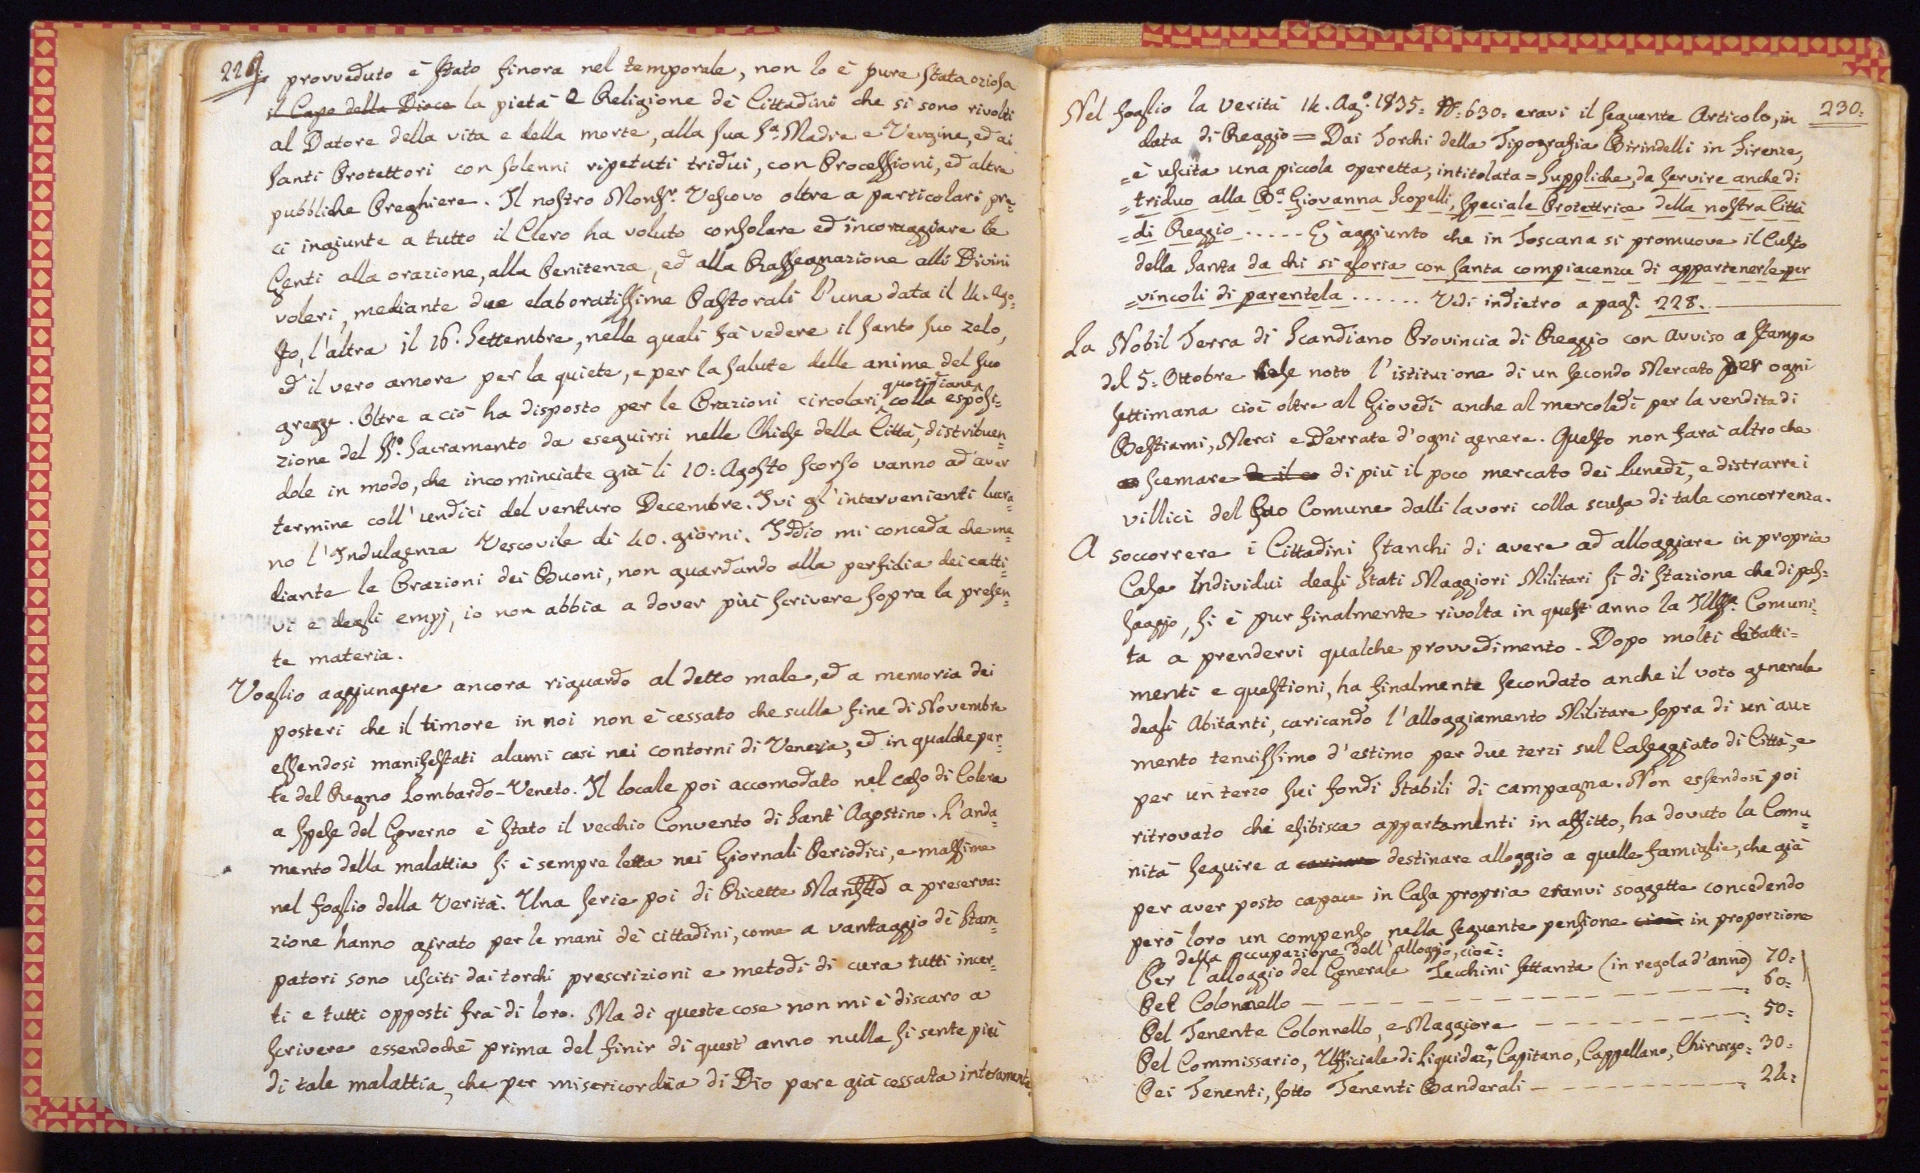 229.
provveduto è stato finora nel temporale, non lo è pure stata oziosa
il Capo della Dioce la pietà e Religione de' Cittadini che si sono rivolti
al Datore della vita e della morte, alla sua Sª Madre e Vergine, ed ai
Santi Protettori con solenni ripetuti tridui, con Processioni, ed altre
pubbliche Preghiere. Il nostro Monsr. Vescovo oltre a particolari pre=
ci ingiunte a tutto il Clero ha voluto consolare ed incoraggiare le
Genti alla orazione, alla Penitenza, ed alla Rassegnazione alli Divini
voleri, mediante due elaboratissime Pastorali l'una data il 14. Ago=
sto, l'altra il 16. Settembre, nelle quali fà vedere il santo suo zelo,
ed il vero amore per la quiete, e per la salute delle anime del suo
gregge. Oltre a ciò ha disposto per le Orazioni circolari quotidiane colla esposi=
zione del SS.º Sacramento da eseguirsi nelle Chiese della Città, distribuen=
dole in modo, che incominciate già li 10: Agosto scorso vanno ad aver
termine coll'undici del venturo Decembre. Ivi gl'intervenienti lucra=
no l'Indulgenza Vescovile di 40. giorni. Iddio mi conceda che me=
diante le Orazioni dei Buoni, non guardando alla perfidia dei catti=
vi e degli empj, io non abbia a dover più scrivere sopra la presen=
te materia.
Voglio aggiungere ancora riguardo al detto male, ed a memoria dei
posteri che il timore in noi non è cessato che sulla fine di Novembre
essendosi manifestati alcuni casi nei contorni di Venezia, ed in qualche par=
te del Regno Lombardo-Veneto. Il locale poi accomodato nel caso di Colera
a spese del Governo è stato il vecchio Convento di Sant'Agostino. L'anda=
mento della malattia si è sempre letta nei Giornali Periodici, e massime
nel foglio della Verità. Una serie poi di Ricette a preserva=
zione hanno girato per le mani de' cittadini, come a vantaggio de' Stam=
patori sono usciti dai torchi prescrizioni e metodi di cura tutti incer=
ti e tutti opposti frà di loro. Ma di queste cose non mi è discaro a
scrivere essendochè prima del finir di quest'anno nulla si sente più
di tale malattia, che per misericordia di Dio pare già cessata interamente.
230.
Nel foglio la Verità 14. Agº. 1835= N: 630= eravi il seguente Articolo, in
data di Reggio = Dai Torchi della Tipografia Birindelli in Firenze,
= è uscita una piccola operetta, intitolata = Suppliche, da servire anche di
= triduo alla Bª Giovanna Scopelli, speciale Protettrice della nostra Città
= di Reggio ..... E' aggiunto che in Toscana si promuove il Culto
della Santa da chi si gloria con santa compiacenza di appartenerle per
= vincoli di parentela ...... Vedi indietro a pag. 228.
La Nobil Terra di Scandiano Provincia di Reggio con avviso a stampa
del 5= Ottobre noto l'istituzione di un secondo Mercato per ogni
settimana cioè oltre al Giovedì anche al mercoledì per la vendita di
Bestiami, Merci e Derrate d'ogni genere. Questo non farà altro che
scemare di più il poco mercato dei Lunedì, e distrarre i
villici del suo Comune dalli lavori colla scusa di tale concorrenza.
A soccorrere i Cittadini stanchi di avere ad alloggiare in propria
Casa Individui degli Stati Maggiori Militari sì di stazione che di pas=
saggio, si è pur finalmente rivolta in quest'anno la Illma. Comuni=
tà a prendervi qualche provvedimento. Dopo molti dibatti=
menti e questioni, ha finalmente secondato anche il voto generale
degli Abitanti, caricando l'alloggiamento Militare sopra di un'au=
mento tenuissimo d'estimo per due terzi sul Caseggiato di Città, e
per un terzo sui fondi stabili di campagna. Non essendosi poi
ritrovato chi esibisca appartamenti in affitto, ha dovuto la Comu=
nità seguire a destinare alloggio a quelle famiglie, che già
per aver posto capace in Casa propria eranvi soggette concedendo
però loro un compenso nella seguente pensione cioè in proporzione
della occupazione dell'alloggio, cioè:
Per l'alloggio del Generale Zecchini settanta (in regola d'anno) 70=
Del Colonnello 60=
Del Tenente Colonnello, e Maggiore 50=
Del Commissario, Ufficiale di liquidazne, Capitano, Cappellano, Chirurgo= 30=
Dei Tenenti, sotto Tenenti Banderali 24=